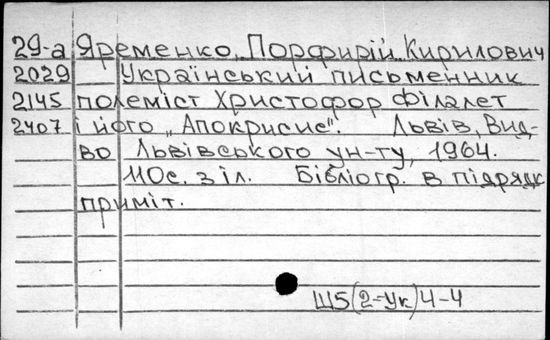 29-а Яременко, Порфирій Кирилович
2029 Український письменник
2145 полеміст Христофор Філалет
2407 і його „Апокрисис". Львів, Вид-
во Львівського ун-ту, 1964.
110с. з іл. Бібліогр. в підрядк.
приміт.
Ш5(2=Ук)4-4